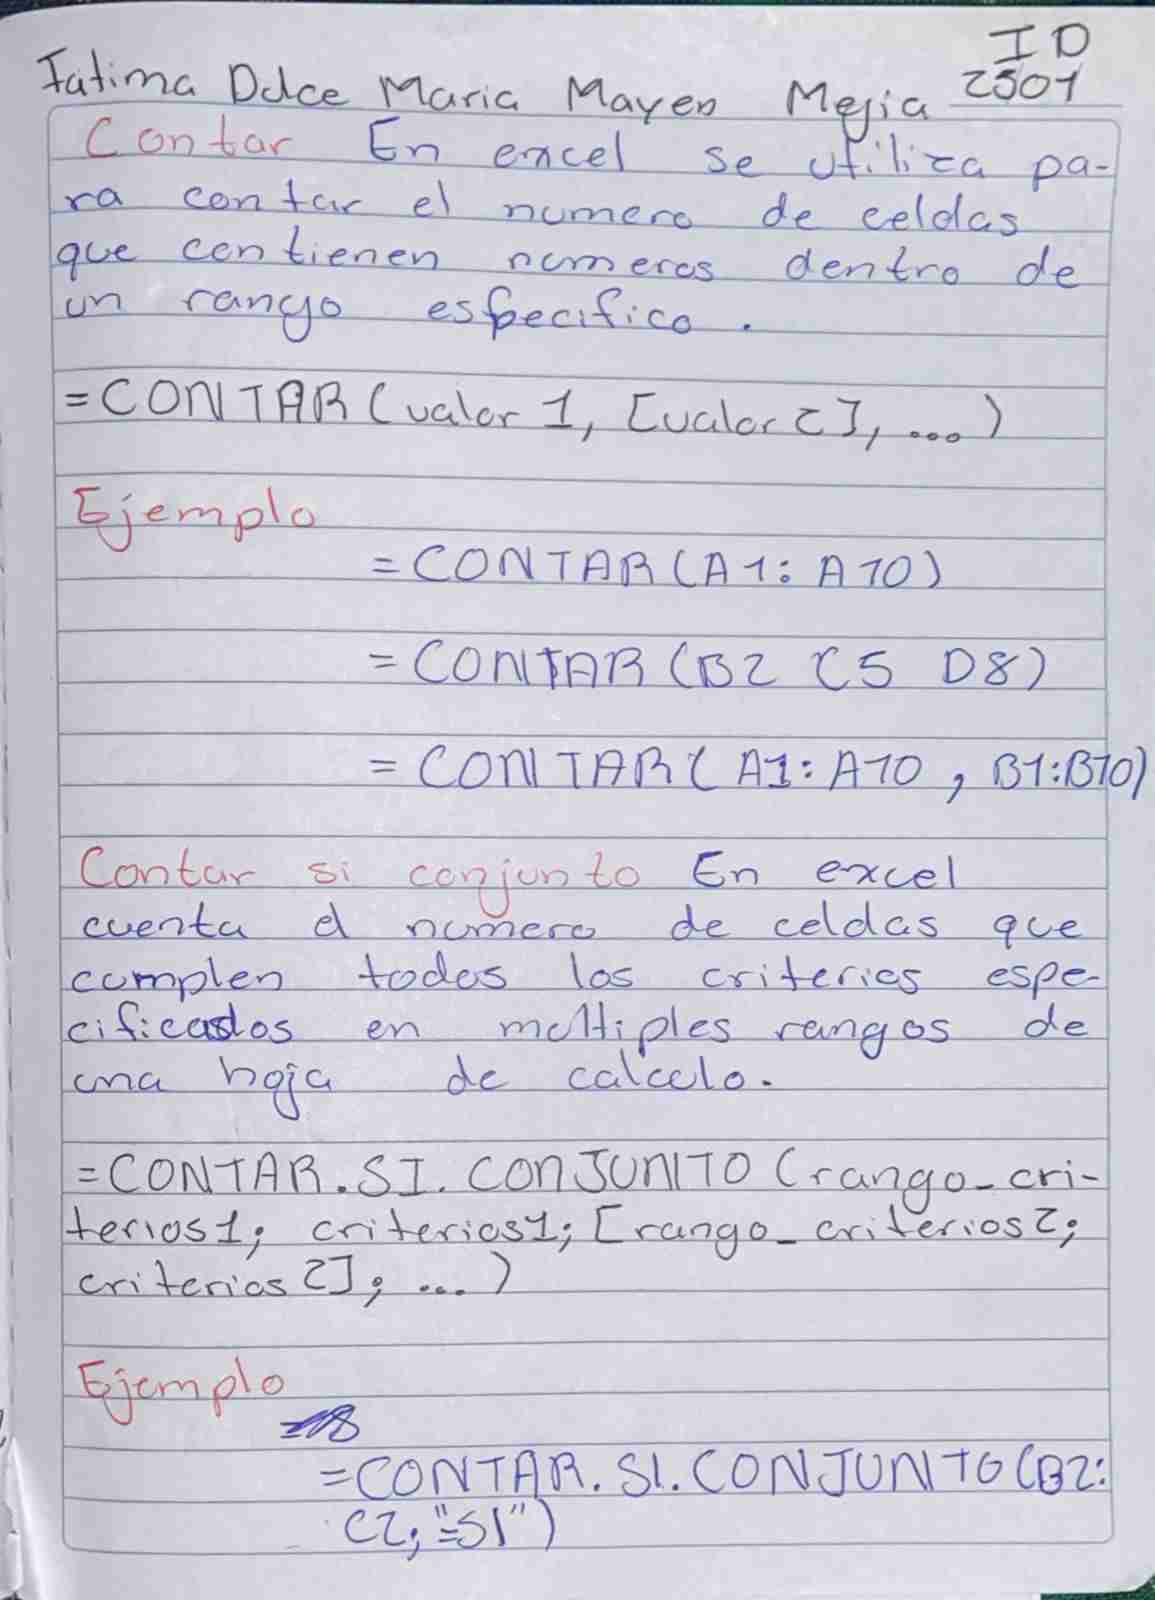 ID
Fatima Dulce Maria Mayen Mejia 2501
Contar En excel se utiliza pa-
ra contar el numero de celdas
que contienen numeros dentro de
un rango especifico.
=CONTAR(valor 1, [valor 2], ...)
Ejemplo
=CONTAR(A1:A10)
=CONTAR(B2 C5 D8)
=CONTAR(A1:A10, B1:B10)
Contar si conjunto En excel
cuenta el numero de celdas que
cumplen todos los criterios espe-
cificados en multiples rangos de
una hoja de calculo.
=CONTAR.SI.CONJUNTO(rango_cri-
terios1; criterios1; [rango_criterios2;
criterios2]; ...)
Ejemplo
=CONTAR.SI.CONJUNTO(B2:
C2;"=SI")